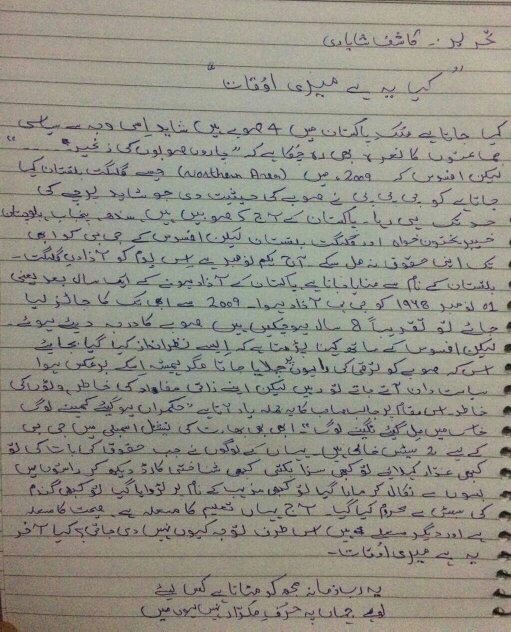 تحریر :- کاشف شاہبازی
"کیا یہ ہے میری اوقات"
کہا جاتا ہے ملک پاکستان میں 4 صوبے ہیں شاید اسی وجہ سے سیاسی
جماعتوں کا نعرہ بھی رہ چکا ہے کہ "چاروں صوبوں کی زنجیر ......"
لیکن افسوس کہ 2009ء میں (Northern Area) جسے گلگت بلتستان کہا
جاتا ہے کو پی پی پی نے صوبے کی حیثیت دی جو شاید پرچے کی
حد تک ہی رہا۔ پاکستان کے آج 5 صوبے ہیں سندھ پنجاب بلوچستان
خیبر پختون خواہ اور گلگت بلتستان لیکن افسوس کے جی بی کو ابھی
تک اپنی حقوق نہ مل سکے۔ آج یکم نومبر ہے اس یوم کو آزادی گلگت۔
بلتستان کے نام سے منایا جاتا ہے پاکستان کے آزاد ہونے کے ایک سال بعد یعنی
01 نومبر 1948 کو جی بی آزاد ہوا۔ 2009 سے ابھی تک کا جائزہ لیا
جائے تو تقریباً 8 سال ہوچکیں ہیں صوبے کا درجہ دیئے ہوئے۔
لیکن افسوس کے ساتھ کہنا پڑھتا ہے کہ ایسے نظر انداز کیا گیا بجائے
اس کہ صوبے کو ترقی کی راہوں پر چلایا جاتا مگر ہمیشہ اسکے برعکس ہوا
سیاست دان آتے جاتے تو رہیں لیکن اپنے ذاتی مفاد کی خاطر ووٹوں کی
خاطر اس مقام پر جالب صاحب کا یہ جملہ یاد آتا ہے "حکمران ہو گئے کمینے لوگ
خاک میں مل گئے نگینے لوگ" ابھی بھی بھارت کی نیشنل اسمبلی میں جی بی
کے لیے 2 سیٹیں خالی ہیں۔ یہاں کے لوگوں نے جب حقوق کی بات کی تو
کبھی غدار کہلائے تو کبھی سزا ملی کبھی شناختی کارڈ دیکھ کر راستوں میں
بسوں سے نکال کر مارا گیا تو کبھی مذہب کے نام پر لڑوایا گیا تو کبھی گندم
کی سبسڈی سے محروم کیا گیا۔ آج یہاں تعلیم کا مسئلہ ہے صحت کا مسئلہ
ہے اور دیگر مسئلے ہیں اس طرف توجہ کیوں نہیں دی جاتی؟ کیا آخر
یہ ہے میری اوقات۔
یہ رب زمانہ مجھ کو مٹاتا ہے کس لیئے
لوح جہاں پہ حرف مکرر نہیں ہوں میں